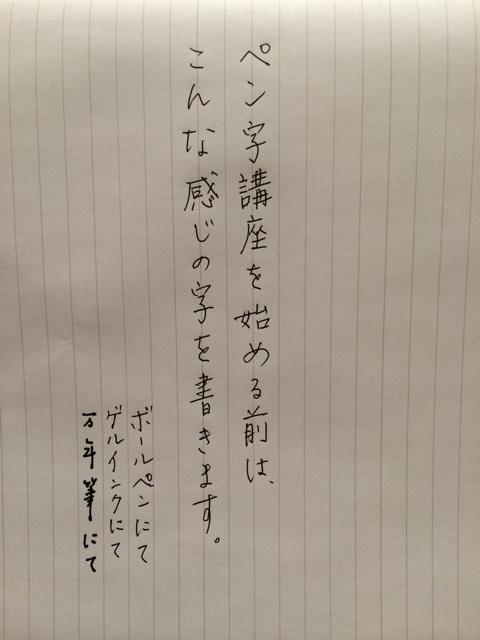 ペン字講座を始める前は、
こんな感じの字を書きます。
ボールペンにて
ゲルインクにて
万年筆にて